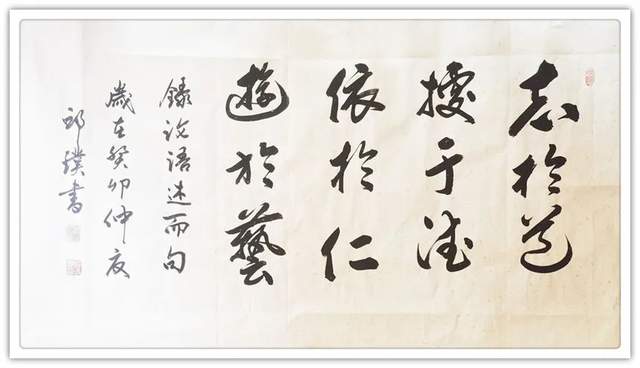 志於道
據于德
依於仁
遊於藝
錄論語述而句
歲在癸卯仲夏
璞書